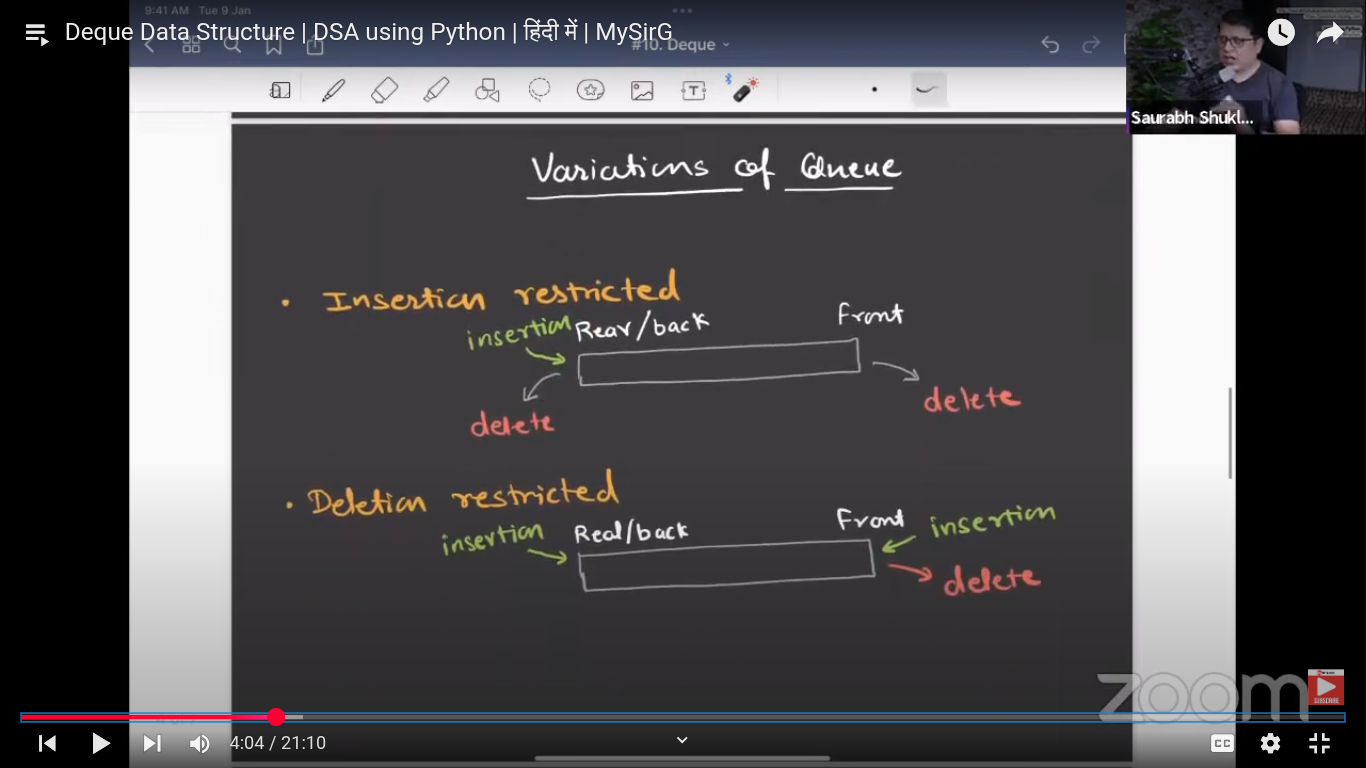 9:41 AM Tue 9 Jan
Deque Data Structure | DSA using Python | हिंदी में | MySirG
#10. Deque
Saurabh Shukl...
Variations of Queue
• Insertion restricted
insertion Rear/back Front
delete delete
• Deletion restricted
insertion Real/back Front insertion
delete
zoom
SUBSCRIBE
4:04 / 21:10
CC